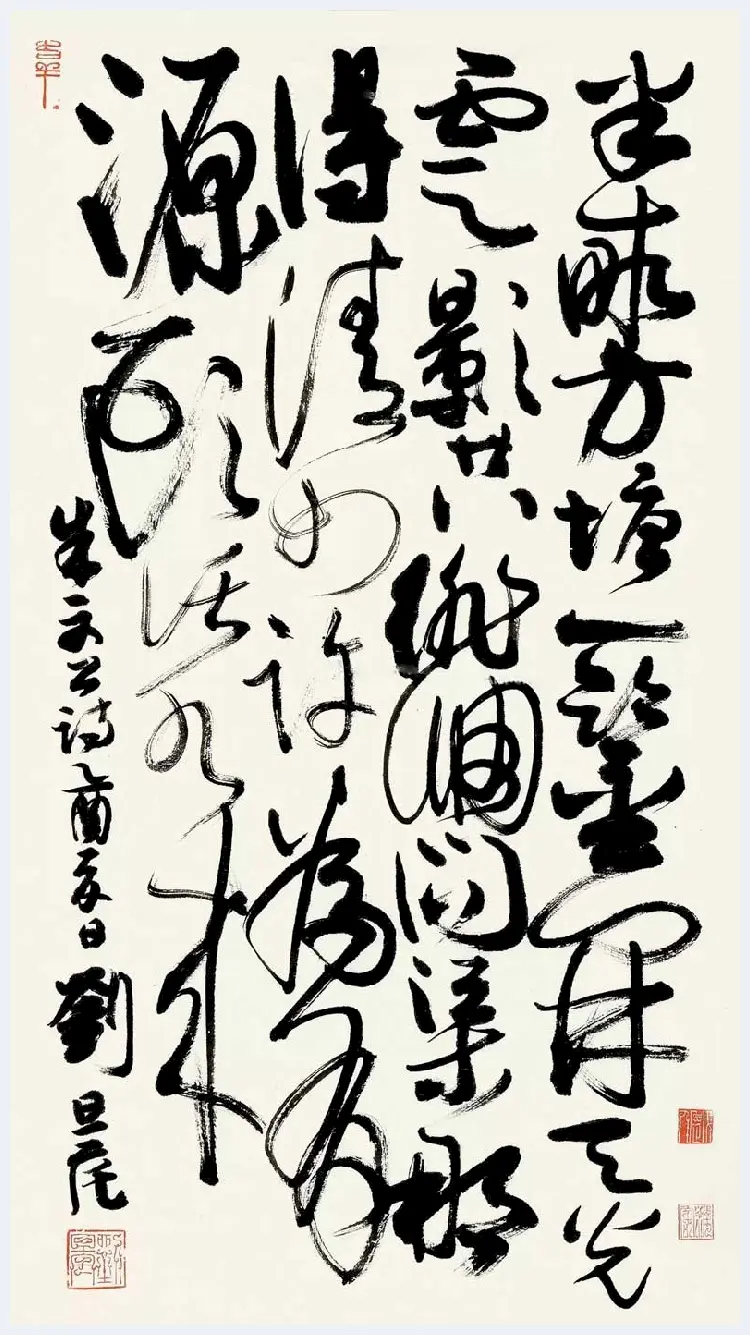 半畝方塘一鑒開天光
雲影共徘徊問渠那
得清如許為有
源頭活水來
朱文公詩乙酉夏日劉旦宅